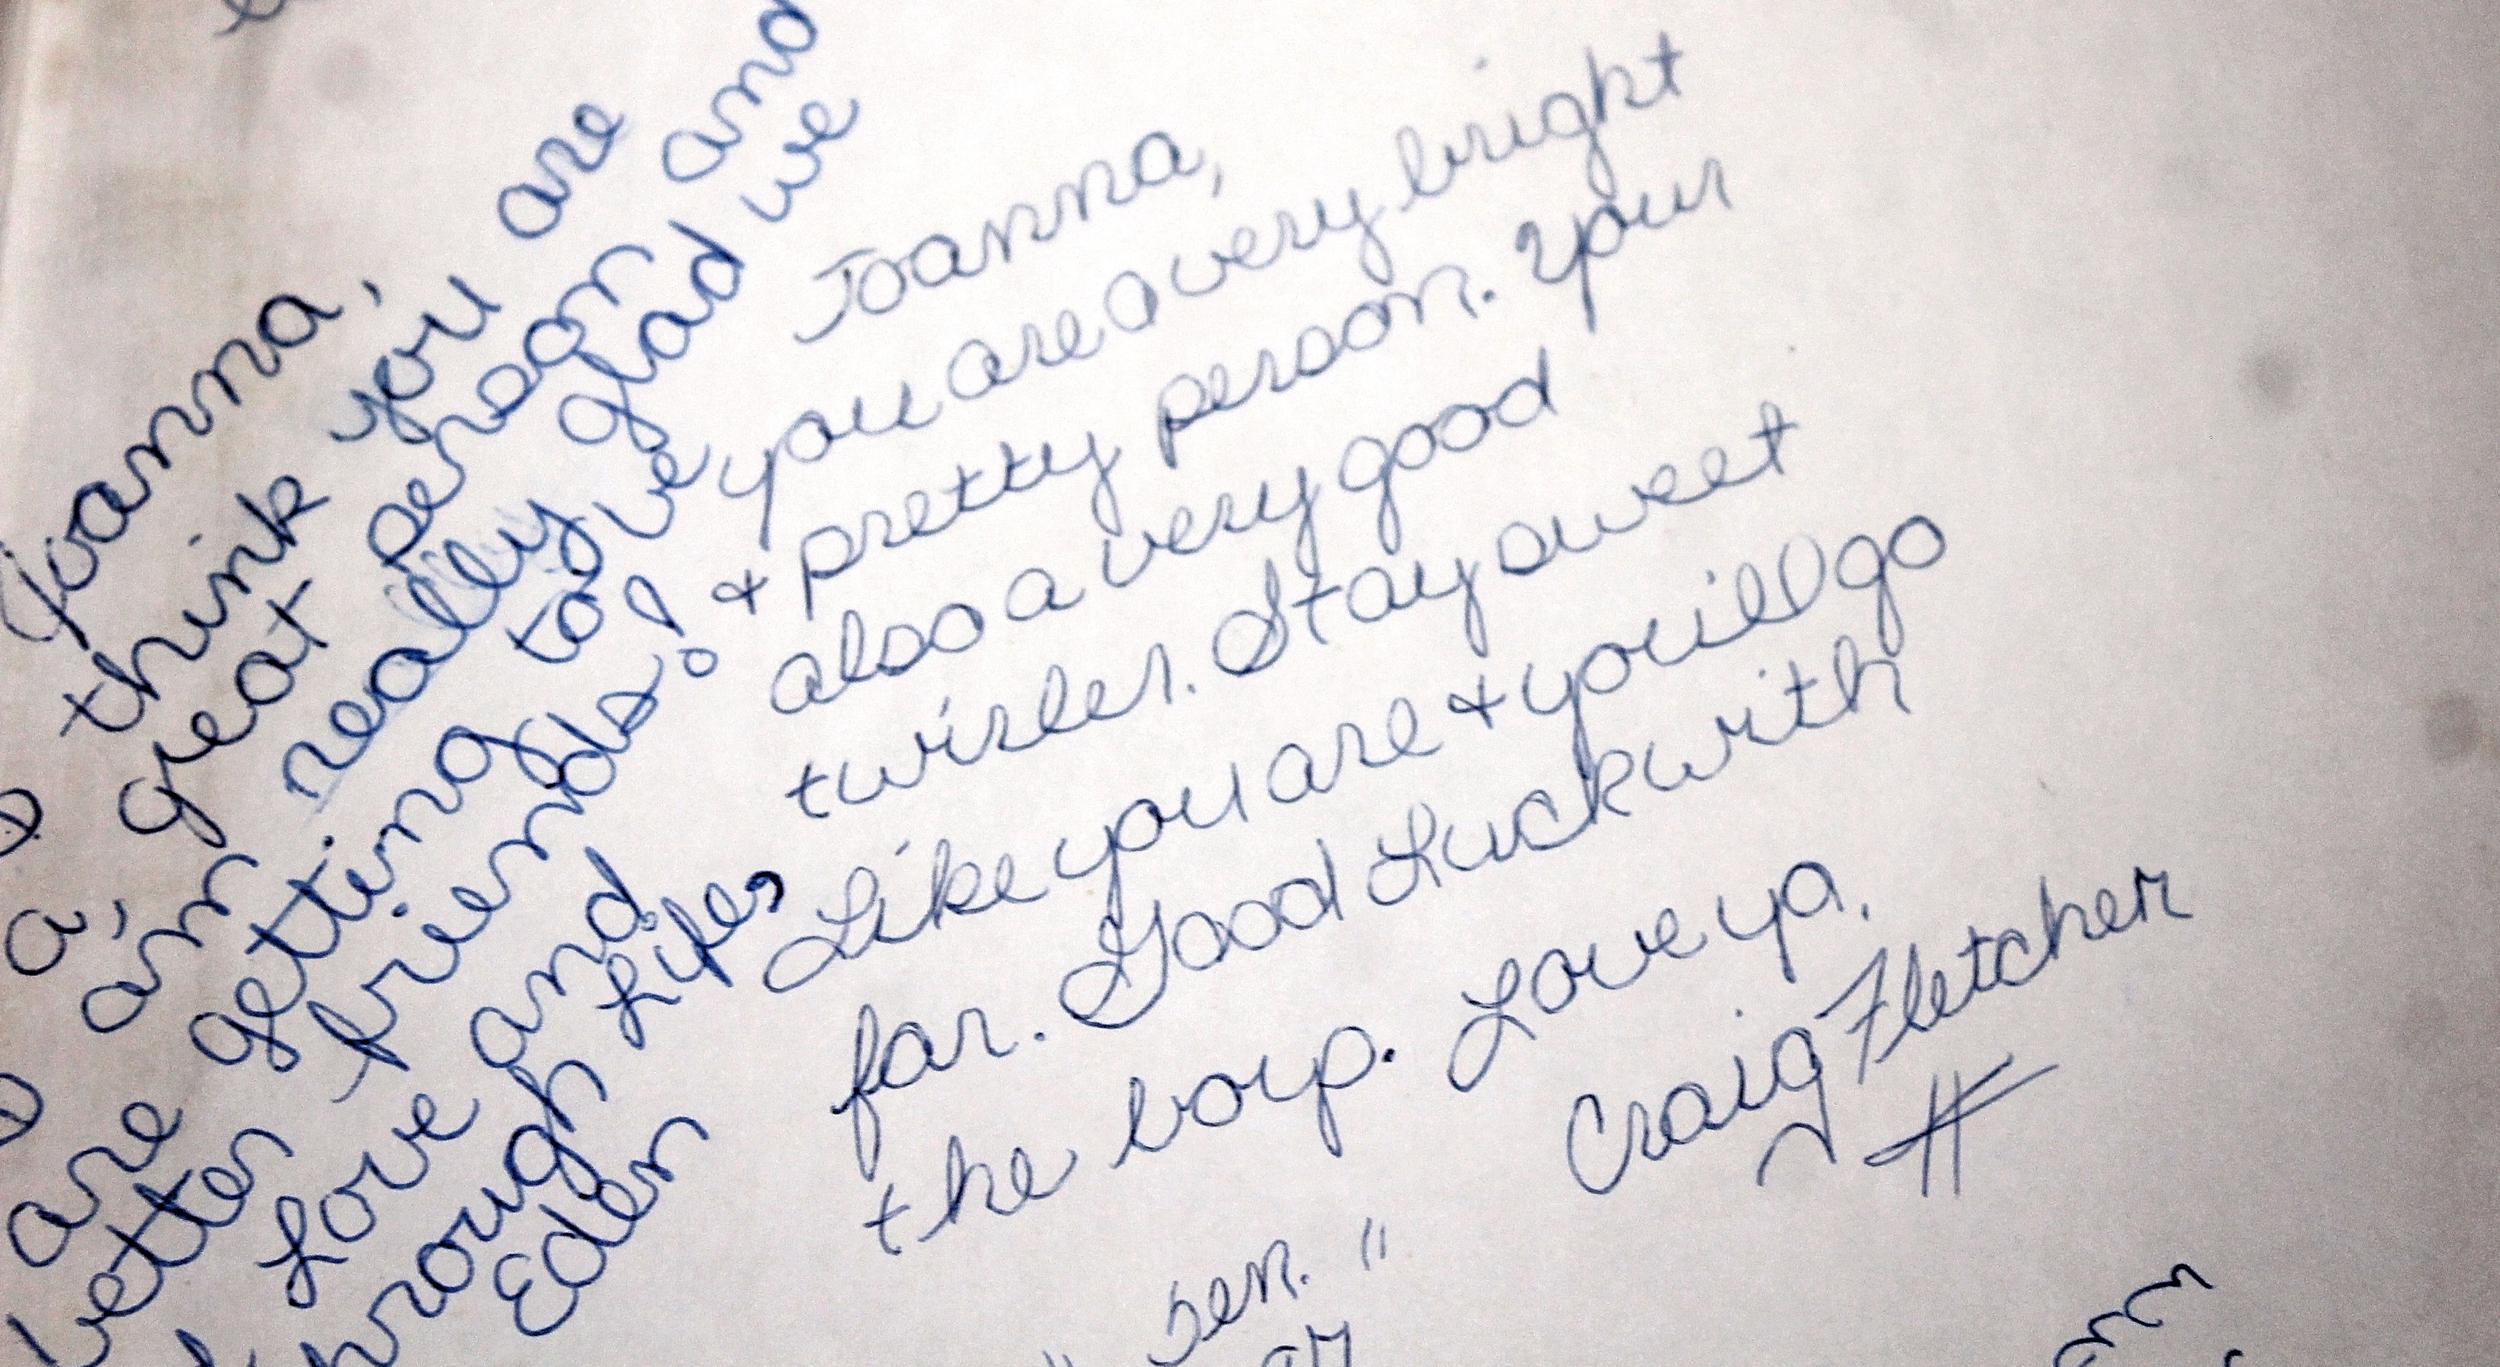 Joanna,
think you are
a great person and
I'm really glad we
are getting to be
better friends!
Love and
through Life,
Eden
Joanna,
you are a very bright
+ pretty person. Your
also a very good
twirler. Stay sweet
Like you are + you'll go
far. Good Luck with
the boys. Love ya.
Craig Fletcher
sen."